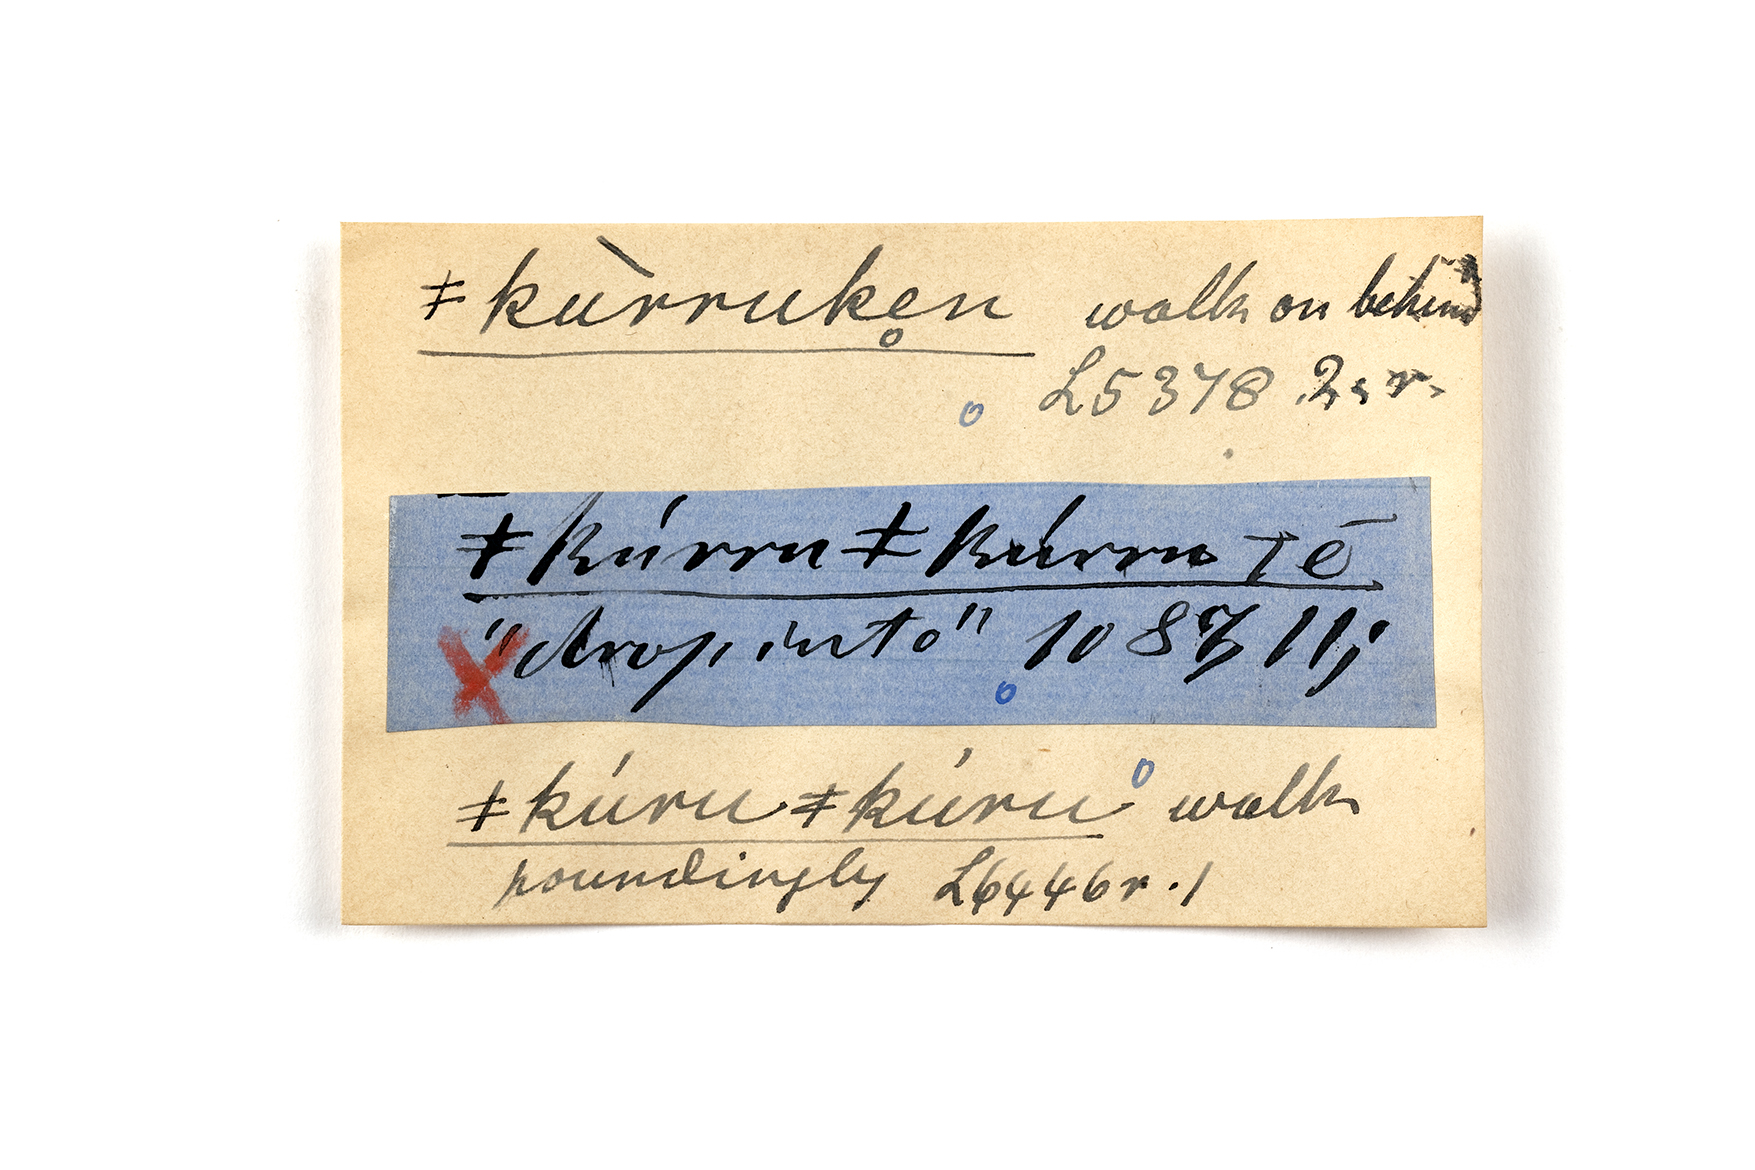 ǂkùrruken̥ walk on behind
L5378 2. r.
ǂkúrruǂkúrru tē
"drop into" 1087, 11;
ǂkúruǂkúru walk
poundingly L6446r. 1